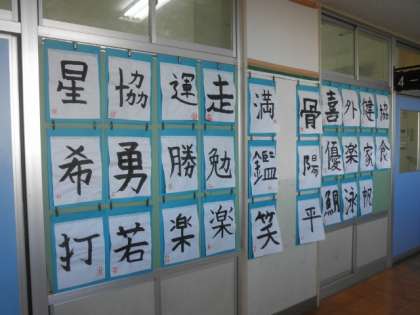 星 協 運 走 満 骨 喜 外 健 協
希 勇 勝 勉 鑑 陽 優 楽 家 食
打 若 楽 楽 笑 平 泳 帆
4